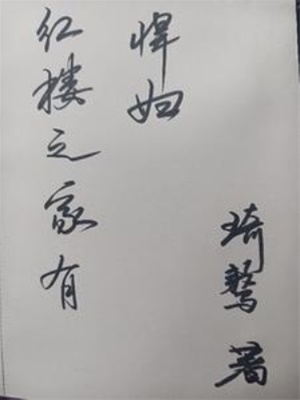 红楼之家有
悍妇
琦著